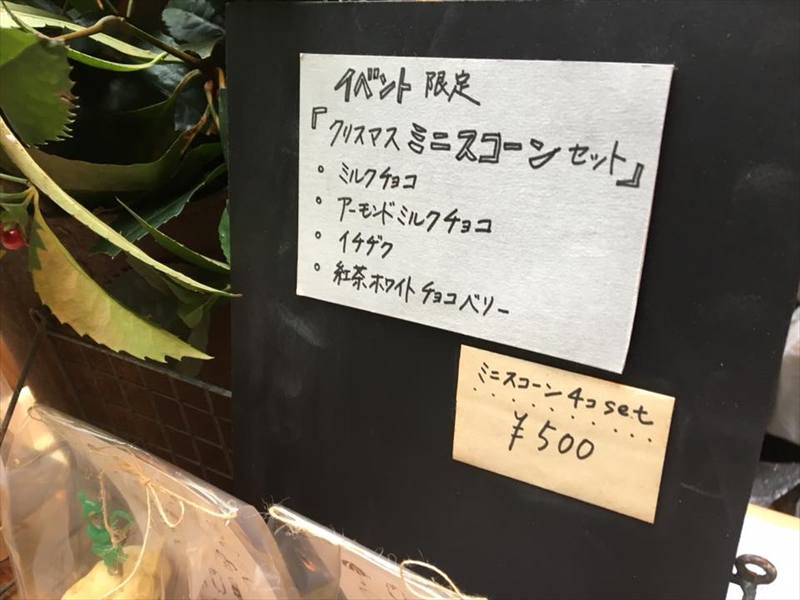 イベント 限定
『クリスマス ミニスコーン セット』
• ミルクチョコ
• アーモンドミルクチョコ
• イチヂク
• 紅茶ホワイトチョコベリー
ミニスコーン 4コ set
¥500